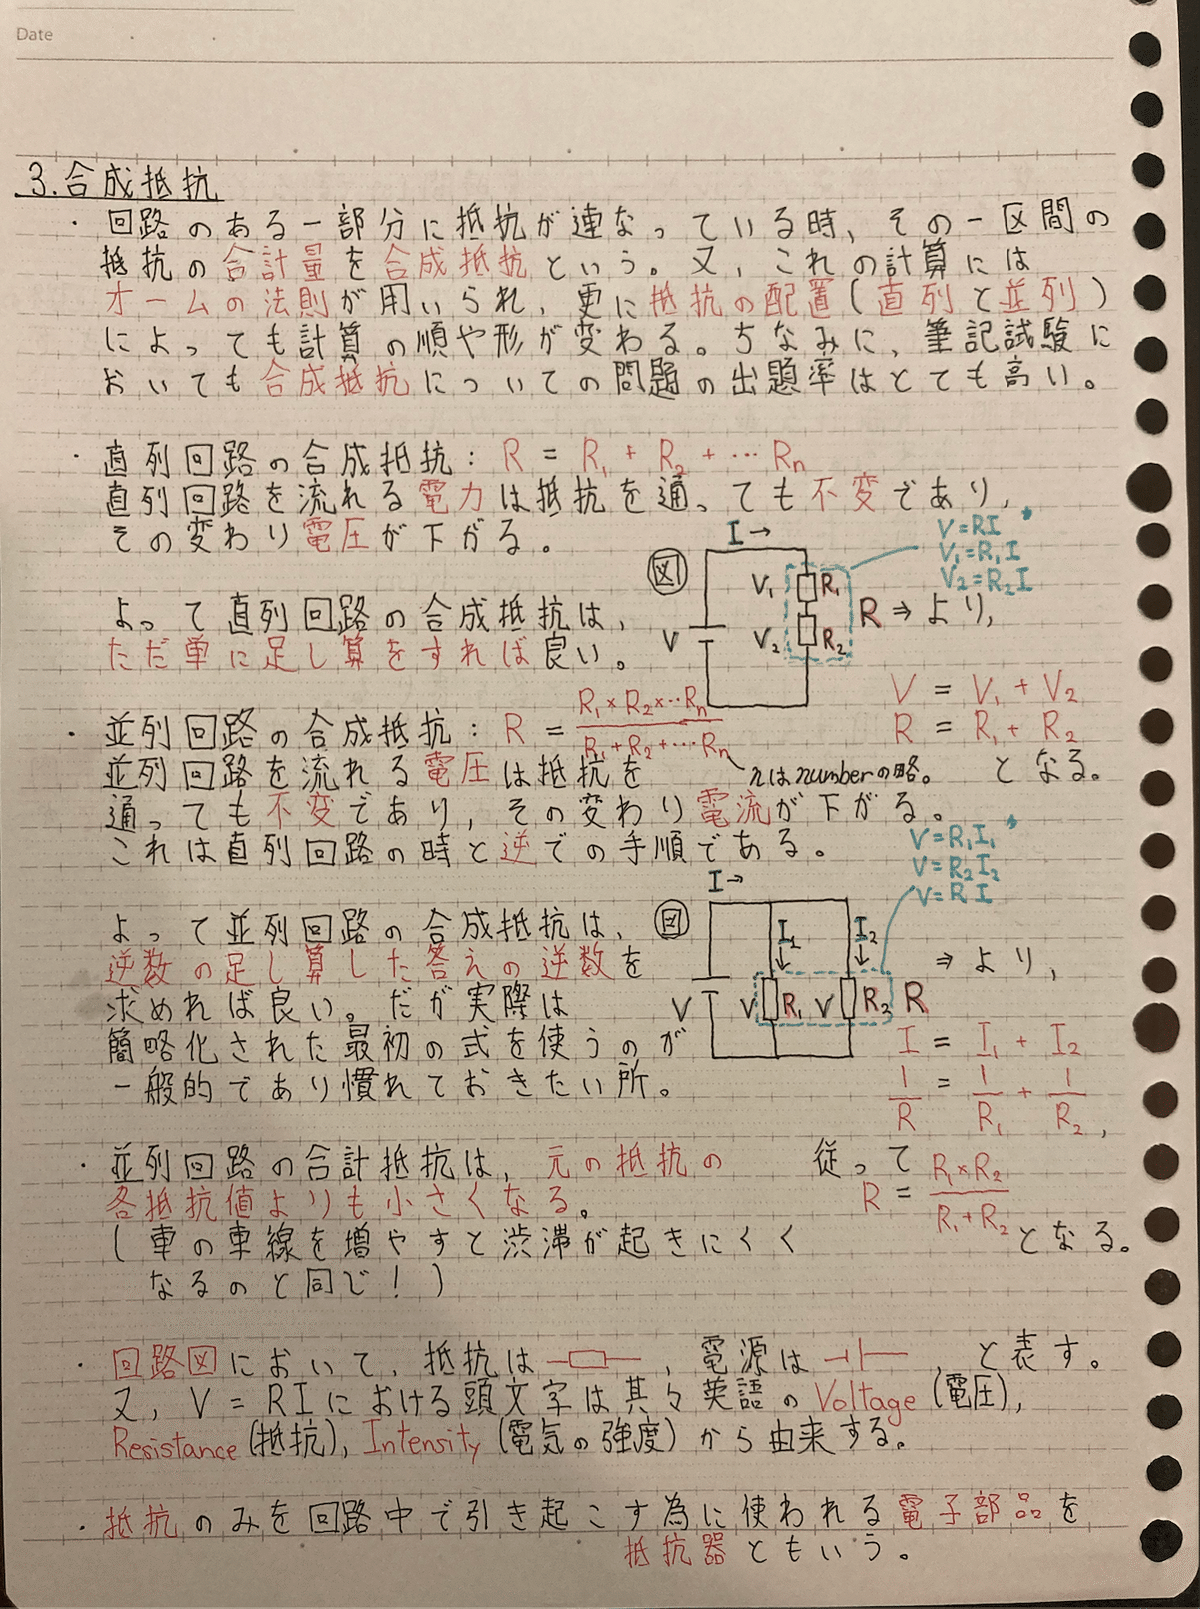 Date
3.合成抵抗
・回路のある一部分に抵抗が連なっている時、その一区間の
抵抗の合計量を合成抵抗という。又、これの計算には
オームの法則が用いられ、更に抵抗の配置(直列と並列)
によっても計算の順や形が変わる。ちなみに、筆記試験に
おいても合成抵抗についての問題の出題率はとても高い。
・直列回路の合成抵抗: R = R₁ + R₂ + … Rn
直列回路を流れる電力は抵抗を通っても不変であり、
その変わり電圧が下がる。
図1
I→
V
V₁ R₁
V₂ R₂
R ⇒ より,
V=RI
V₁=R₁I
V₂=R₂I
よって直列回路の合成抵抗は、
ただ単に足し算をすれば良い。
V = V₁ + V₂
R = R₁ + R₂
となる。
・並列回路の合成抵抗: R = R₁×R₂×…Rn / R₁+R₂+…Rn
nはnumberの略。
並列回路を流れる電圧は抵抗を
通っても不変であり、その変わり電流が下がる。
これは直列回路の時と逆での手順である。
V=R₁I₁
V=R₂I₂
V=RI
図
I→
I₁↓ I₂↓
V V R₁ V R₂ R
⇒より,
よって並列回路の合成抵抗は、
逆数の足し算した答えの逆数を
求めれば良い。だが実際は
簡略化された最初の式を使うのが
一般的であり慣れておきたい所。
I = I₁ + I₂
1/R = 1/R₁ + 1/R₂,
従って
R = R₁×R₂ / R₁+R₂
となる。
・並列回路の合計抵抗は、元の抵抗の
各抵抗値よりも小さくなる。
(車の車線を増やすと渋滞が起きにくく
なるのと同じ!)
・回路図において、抵抗は , 電源は , と表す。
又, V = RIにおける頭文字は其々英語のVoltage(電圧),
Resistance(抵抗), Intensity(電気の強度)から由来する。
・抵抗のみを回路中で引き起こす為に使われる電子部品を
抵抗器ともいう。